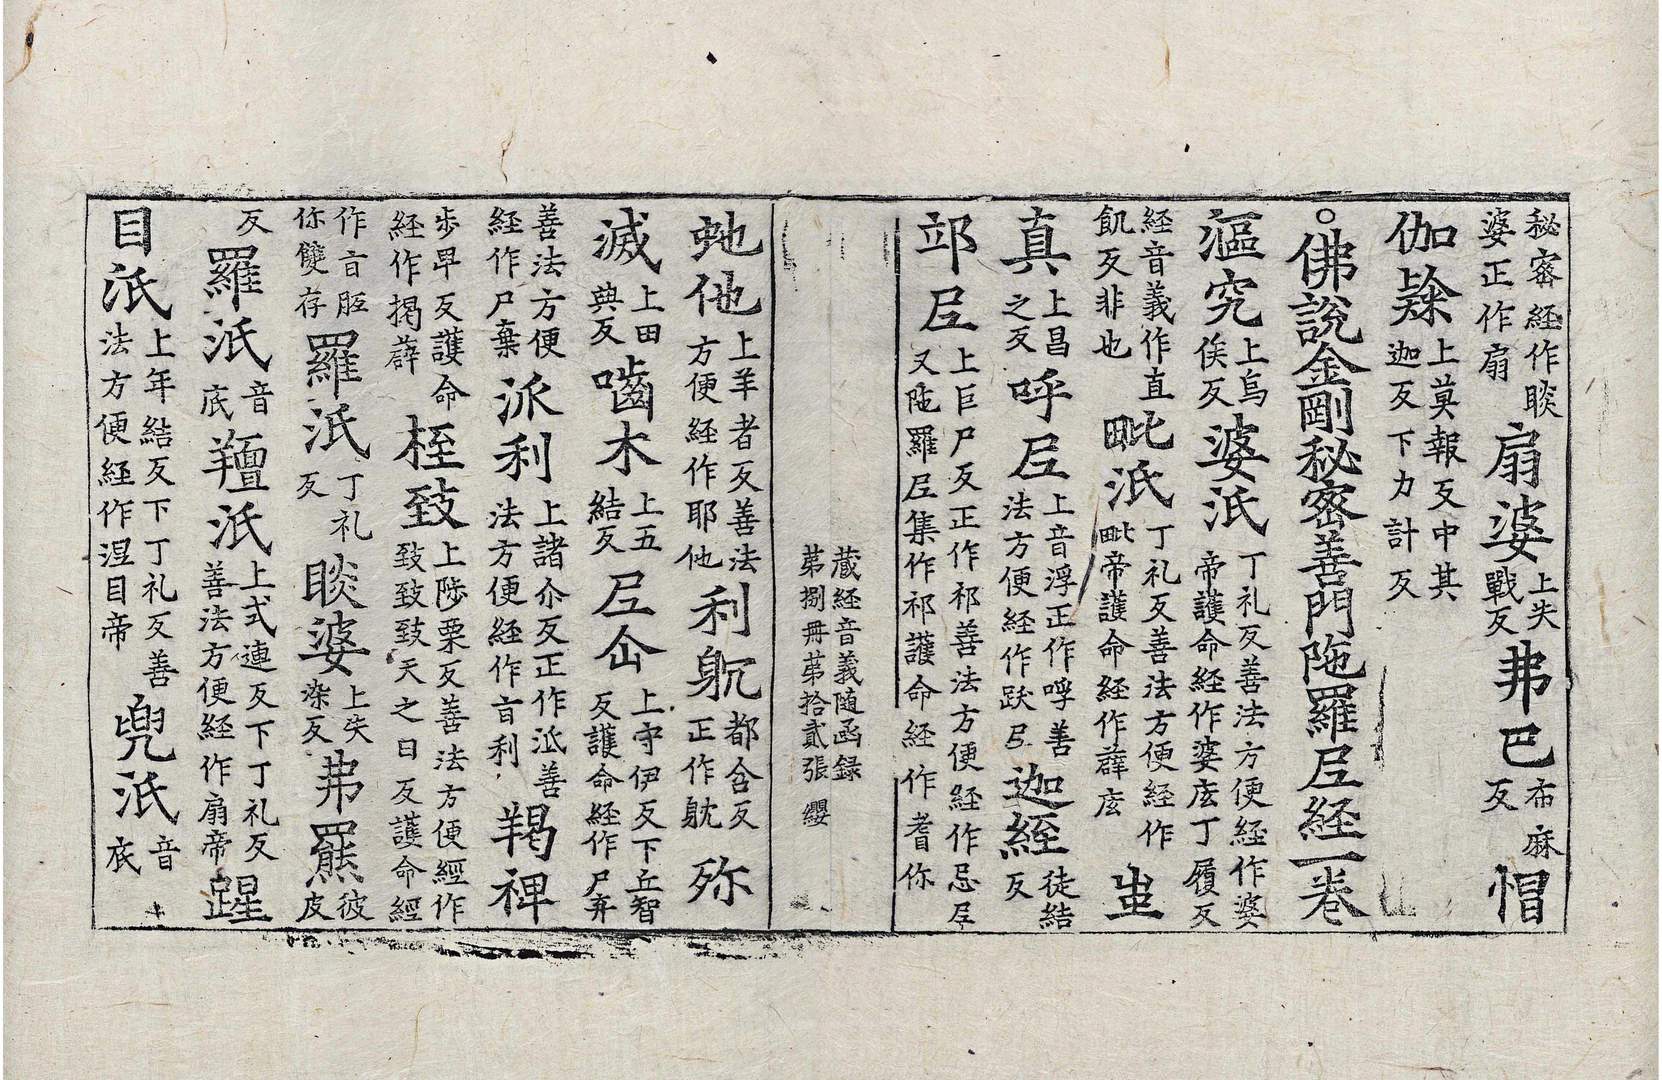 秘密経作睒
婆正作扇
扇婆
上失
戰反
弗巴
布麻
反
帽
伽㱡
上莫報反中其
迦反下力計反
○佛說金剛秘密善門陁羅尼経一卷
漚究
上烏
侯反
婆泜
丁礼反善法方便経作婆
帝護命経作婆㡳丁履反
経音義作直
飢反非也
毗泜
丁礼反善法方便経作
毗帝護命経作薜㡳
蚩
真
上昌
之反
呼尼
上音浮正作呼善
法方便経作趺丐
迦絰
徒結
反
邛尼
上巨尸反正作祁善法方便経作忌尼
又陁羅尼集作祁護命経作耆你
藏経音義隨函録
苐捌冊苐拾貳張 纓
虵他
上羊者反善法
方便経作耶他
利躭
都含反
正作躭
殄
滅
上田
典反
嚙木
上五
結反
尼㕬
上守伊反下丘智
反護命経作尸弃
善法方便
経作尸棄
派利
上諸介反正作泜善
法方便経作盲利
羯裨
步卑反護命
経作揭薜
桎致
上陟栗反善法方便經作
致致致天之日反護命經
作盲脛
你雙存
羅泜
丁礼
反
睒婆
上失
染反
弗羆
彼
皮
反
羅泜
音
底
羶泜
上式連反下丁礼反
善法方便経作扇帝
䠷
目泜
上年結反下丁礼反善
法方便経作涅目帝
兜泜
音
底